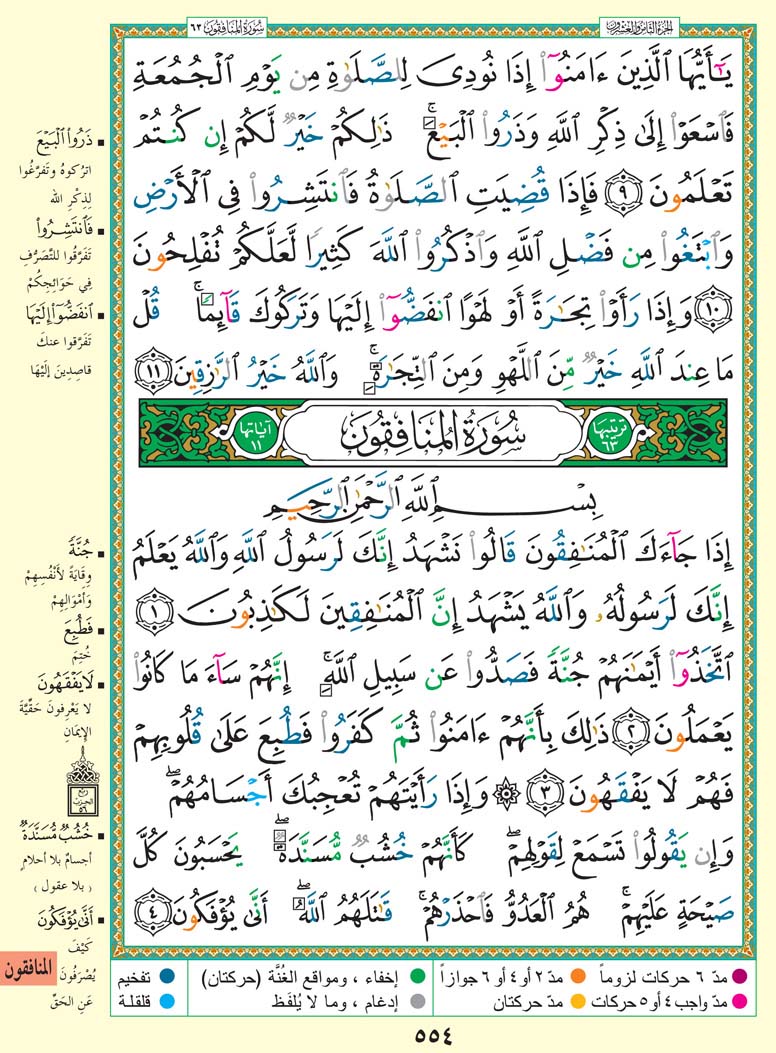 سُورَةُ المُنَافِقُون ٦٣
الجُزءُ الثَّامِن وَالعِشرُون
يَٰٓأَيُّهَا ٱلَّذِينَ ءَامَنُوٓا۟ إِذَا نُودِىَ لِلصَّلَوٰةِ مِن يَوْمِ ٱلْجُمُعَةِ
فَٱسْعَوْا۟ إِلَىٰ ذِكْرِ ٱللَّهِ وَذَرُوا۟ ٱلْبَيْعَ ۚ ذَٰلِكُمْ خَيْرٌ لَّكُمْ إِن كُنتُمْ
تَعْلَمُونَ ٩ فَإِذَا قُضِيَتِ ٱلصَّلَوٰةُ فَٱنتَشِرُوا۟ فِى ٱلْأَرْضِ
وَٱبْتَغُوا۟ مِن فَضْلِ ٱللَّهِ وَٱذْكُرُوا۟ ٱللَّهَ كَثِيرًا لَّعَلَّكُمْ تُفْلِحُونَ
١٠ وَإِذَا رَأَوْا۟ تِجَٰرَةً أَوْ لَهْوًا ٱنفَضُّوٓا۟ إِلَيْهَا وَتَرَكُوكَ قَآئِمًا ۚ قُلْ
مَا عِندَ ٱللَّهِ خَيْرٌ مِّنَ ٱللَّهْوِ وَمِنَ ٱلتِّجَٰرَةِ ۚ وَٱللَّهُ خَيْرُ ٱلرَّٰزِقِينَ ١١
ترتيبها ٦٣
سُورَةُ المُنَافِقُونَ
آياتها ١١
بِسْمِ ٱللَّهِ ٱلرَّحْمَٰنِ ٱلرَّحِيمِ
إِذَا جَآءَكَ ٱلْمُنَٰفِقُونَ قَالُوا۟ نَشْهَدُ إِنَّكَ لَرَسُولُ ٱللَّهِ وَٱللَّهُ يَعْلَمُ
إِنَّكَ لَرَسُولُهُۥ وَٱللَّهُ يَشْهَدُ إِنَّ ٱلْمُنَٰفِقِينَ لَكَٰذِبُونَ ١
ٱتَّخَذُوٓا۟ أَيْمَٰنَهُمْ جُنَّةً فَصَدُّوا۟ عَن سَبِيلِ ٱللَّهِ ۚ إِنَّهُمْ سَآءَ مَا كَانُوا۟
يَعْمَلُونَ ٢ ذَٰلِكَ بِأَنَّهُمْ ءَامَنُوا۟ ثُمَّ كَفَرُوا۟ فَطُبِعَ عَلَىٰ قُلُوبِهِمْ
فَهُمْ لَا يَفْقَهُونَ ٣ ۞ وَإِذَا رَأَيْتَهُمْ تُعْجِبُكَ أَجْسَامُهُمْ ۖ
وَإِن يَقُولُوا۟ تَسْمَعْ لِقَوْلِهِمْ ۖ كَأَنَّهُمْ خُشُبٌ مُّسَنَّدَةٌ ۖ يَحْسَبُونَ كُلَّ
صَيْحَةٍ عَلَيْهِمْ ۚ هُمُ ٱلْعَدُوُّ فَٱحْذَرْهُمْ ۚ قَٰتَلَهُمُ ٱللَّهُ ۖ أَنَّىٰ يُؤْفَكُونَ ٤
ذَرُوا۟ ٱلْبَيْعَ
اتركوهُ وتَفَرَّغُوا
لِذِكْرِ الله
فَٱنتَشِرُوا۟
تَفَرَّقُوا للتَّصَرُّفِ
فِي حَوَائِجِكُمْ
ٱنفَضُّوٓا۟ إِلَيْهَا
تَفَرَّقوا عنكَ
قاصِدِينَ إلَيْهَا
جُنَّةً
وِقايَةً لأَنْفُسِهِمْ
وَأمْوَالِهِمْ
فَطُبِعَ
خُتِمَ
لَا يَفْقَهُونَ
لا يَعْرِفونَ حَقِّيَّةَ
الإيمَانِ
ربع
الحزب
٥٦
خُشُبٌ مُّسَنَّدَةٌ
أجسامٌ بلا أحلامٍ
( بلا عقول )
أَنَّىٰ يُؤْفَكُونَ
كَيْفَ
يُصْرَفُونَ
عَنِ الحَقِّ
المنافقون
مدّ ٦ حركات لزوماً
مدّ ٢ أو ٤ أو ٦ جوازاً
إخفاء ، ومواقع الغُنَّة (حركتان)
تفخيم
مدّ واجب ٤ أو ٥ حركات
مدّ حركتان
إدغام ، وما لا يُلفَظ
قلقلة
٥٥٤